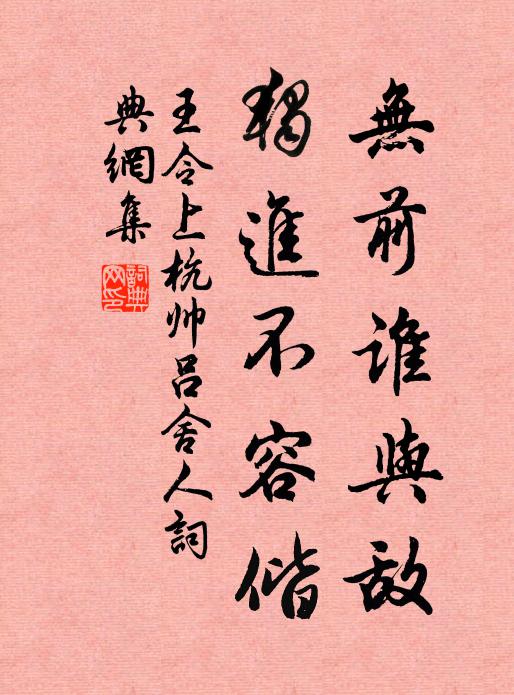 無前誰與敌
獨進不容偕
王令上杭帅吕舍人詞
典網集
詞典网印